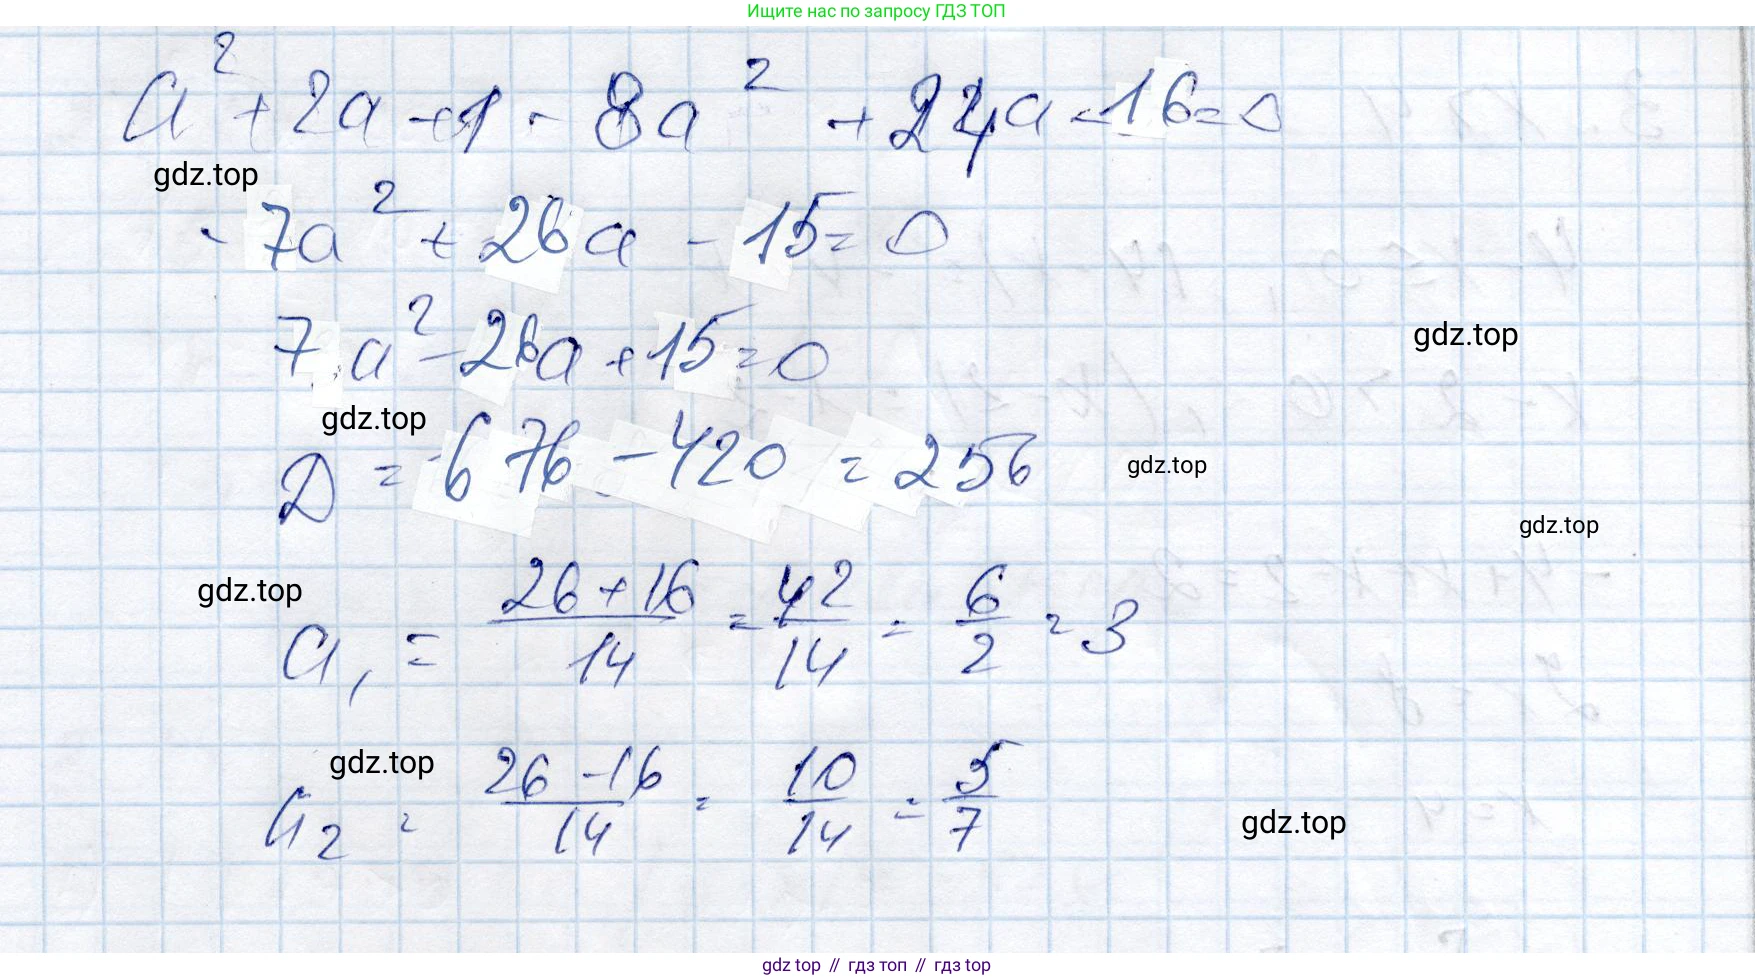 Ищите нас по запросу ГДЗ ТОП
a² + 2a + 1 - 8a² + 24a - 16 = 0
gdz.top
- 7a² + 26a - 15 = 0
7a² - 26a + 15 = 0
gdz.top
gdz.top
D = 676 - 420 = 256
gdz.top
gdz.top
gdz.top
a₁ = (26 + 16)/14 = 42/14 = 6/2 = 3
gdz.top
a₂ = (26 - 16)/14 = 10/14 = 5/7
gdz.top
gdz top // гдз топ // гдз top